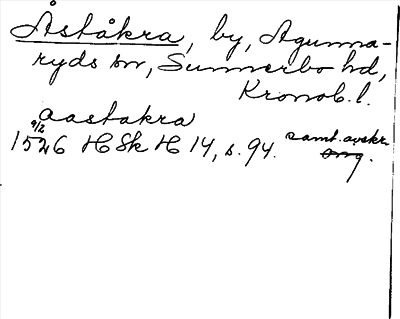 Åståkra, by, Agunna-
ryds sn, Sunnerbo hd,
Kronob. l.
aastakra
1526 9/2 HSk H 14, s. 94. samt. avskr.